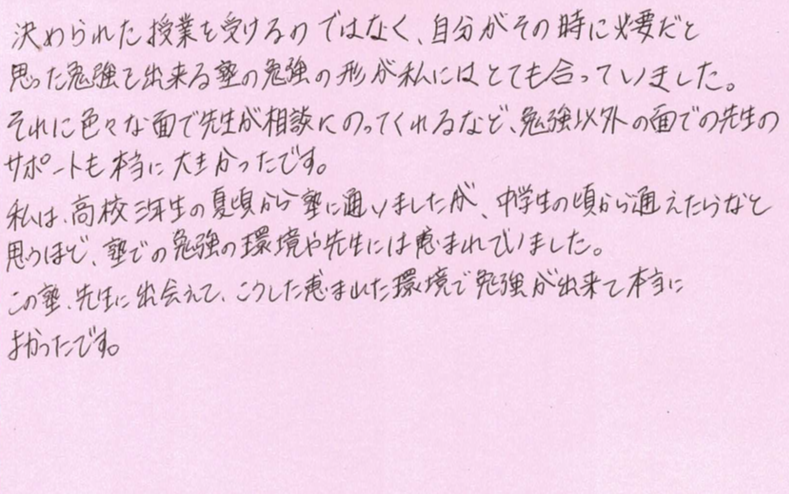 決められた授業を受けるのではなく、自分がその時に必要だと
思った勉強を出来る塾の勉強の形が私にはとても合っていました。
それに色々な面で先生が相談にのってくれるなど、勉強以外の面での先生の
サポートも本当に大きかったです。
私は、高校三年生の夏頃から塾に通いましたが、中学生の頃から通えたらなと
思うほど、塾での勉強の環境や先生には恵まれていました。
この塾、先生に出会えて、こうした恵まれた環境で勉強が出来て本当に
よかったです。